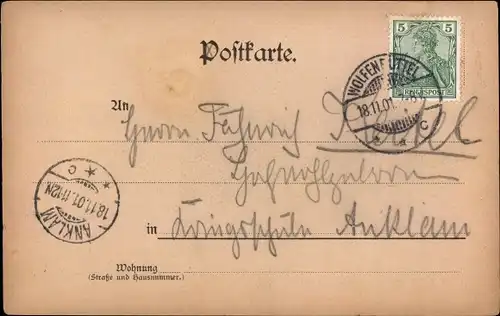 5 5
REICHSPOST
Postkarte.
WOLFENBÜTTEL
18.11.01.
* * C
An
Herrn Fähnrich
Hohenzollern
in Kriegsschule Anklam
ANKLAM
18.11.01. 11-12N
* * C
Wohnung
(Straße und Hausnummer.)